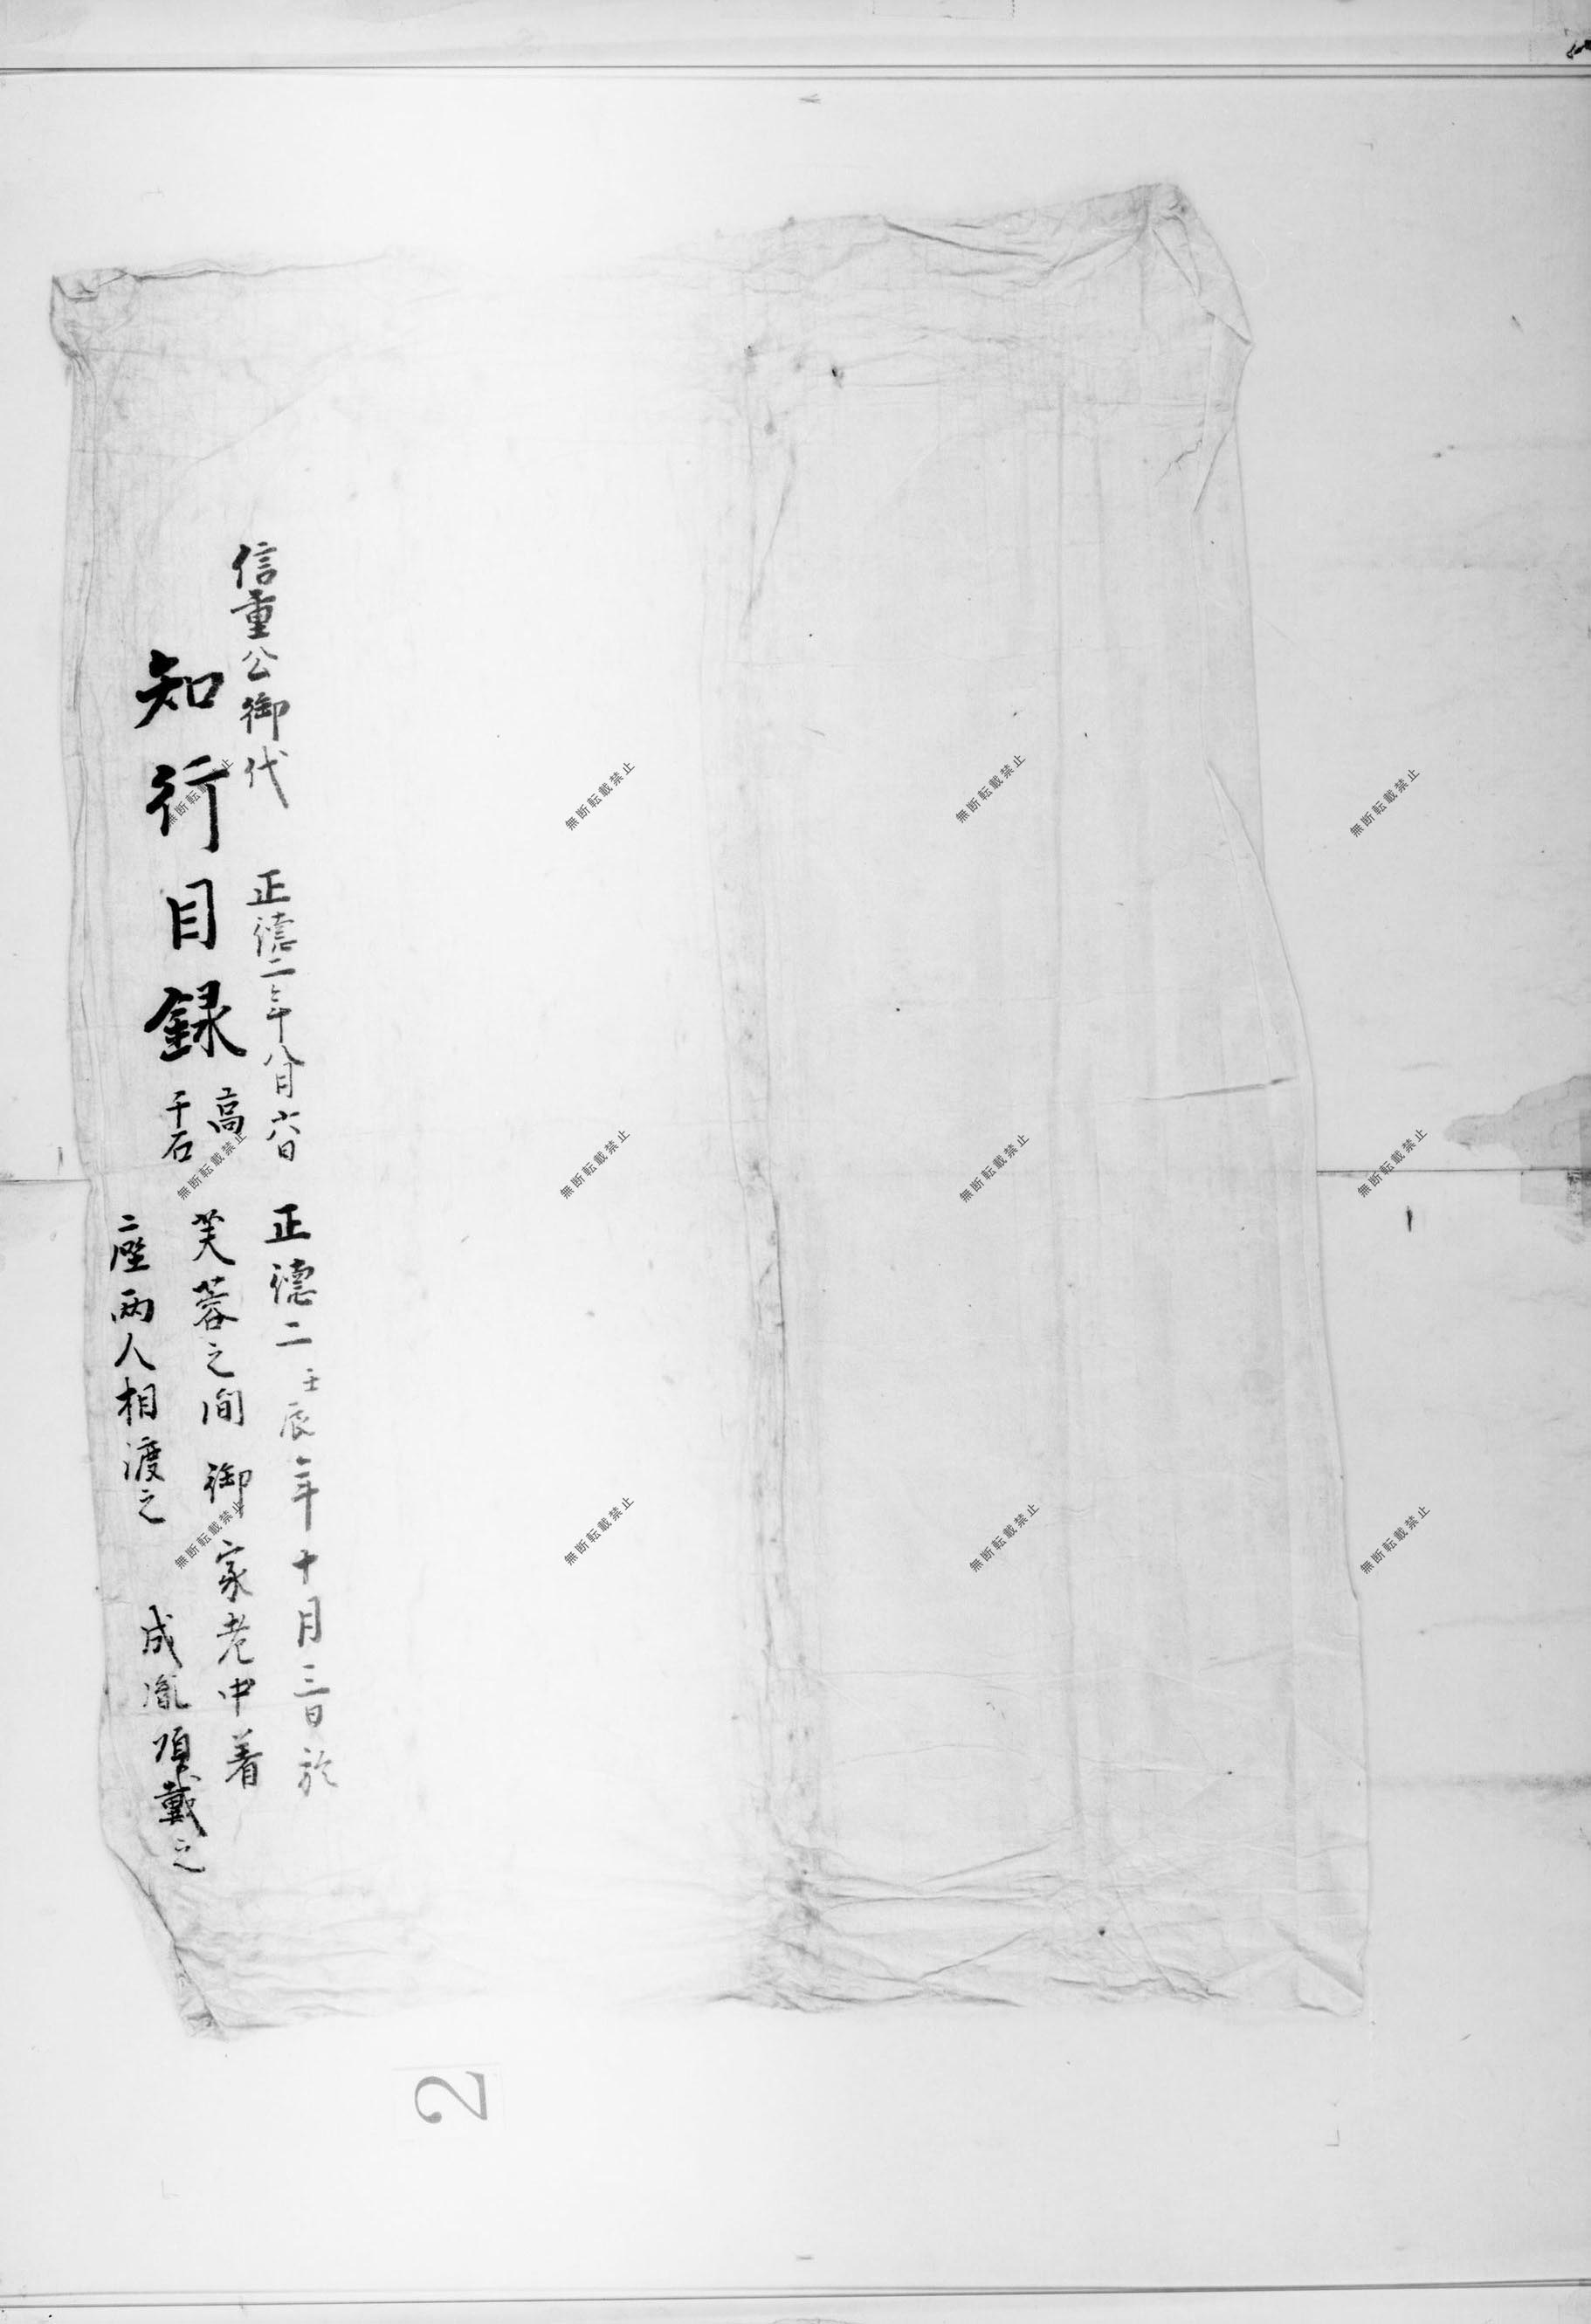 信重公御代　正徳二年八月六日
知行目録
高
千石
正徳二壬辰年十月三日於
芙蓉之間　御家老中着
座両人相渡之　成胤頂戴之
2
無断転載禁止
無断転載禁止
無断転載禁止
無断転載禁止
無断転載禁止
無断転載禁止
無断転載禁止
無断転載禁止
無断転載禁止
無断転載禁止
無断転載禁止
無断転載禁止